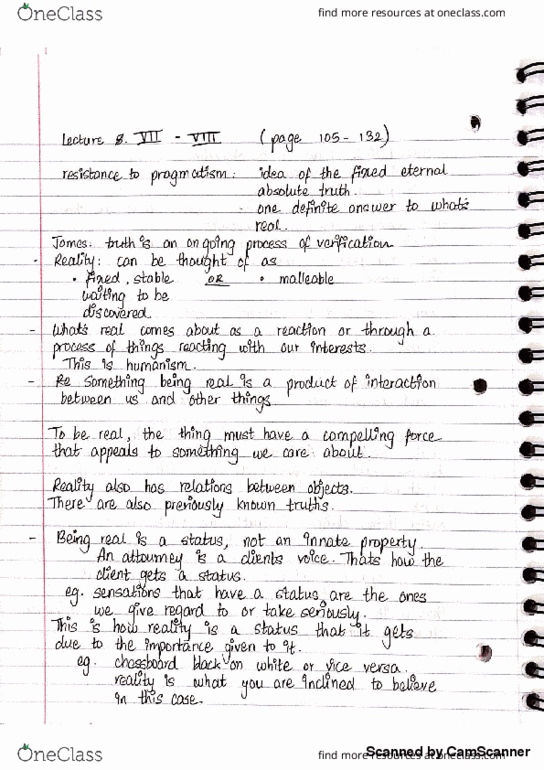 OneClass find more resources at oneclass.com
Lecture 8. VII - VIII (page 105-132)
resistance to pragmatism: idea of the fixed eternal
absolute truth.
one definite answer to what's
real.
James: truth is an ongoing process of verification
- Reality: can be thought of as
• fixed, stable OR • malleable
waiting to be
discovered.
- What's real comes about as a reaction or through a
process of things reacting with our interests.
This is humanism.
- Re Something being real is a product of interaction
between us and other things.
To be real, the thing must have a compelling force
that appeals to something we care about.
Reality also has relations between objects.
There are also previously known truths.
- Being real is a status, not an innate property.
An attourney is a clients voice. Thats how the
client gets a status.
eg. sensations that have a status are the ones
we give regard to or take seriously.
This is how reality is a status that it gets
due to the importance given to it.
eg. chessboard black on white or vice versa.
reality is what you are inclined to believe
in this case.
OneClass find more resources at oneclass.com
Scanned by CamScanner